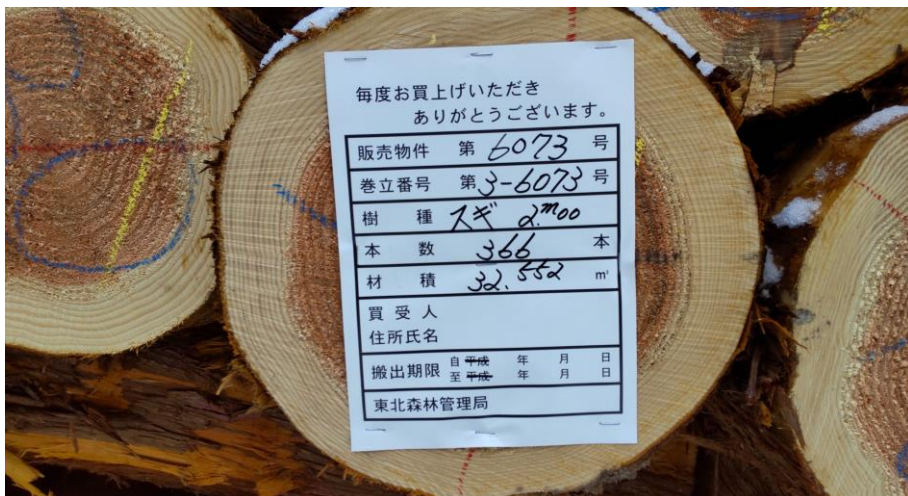 毎度お買上げいただき
ありがとうございます。
販売物件 第 6073 号
巻立番号 第 3-6073 号
樹種 スギ 2.m00
本数 366 本
材積 32.552 m³
買受人
住所氏名
搬出期限 自 平成 年 月 日
至 平成 年 月 日
東北森林管理局